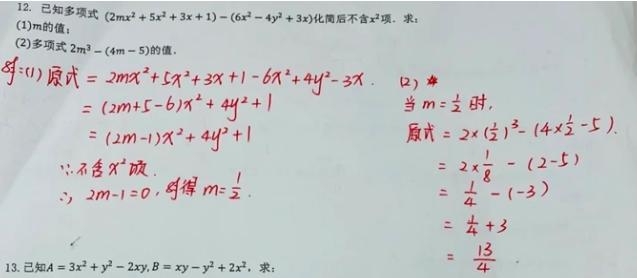 12. 已知多项式 (2mx² + 5x² + 3x + 1) − (6x² − 4y² + 3x)化简后不含x²项. 求:
(1)m的值;
(2)多项式 2m³ − (4m − 5)的值.
解:(1) 原式 = 2mx²+5x²+3x+1-6x²+4y²-3x.
= (2m+5-6)x²+4y²+1
= (2m-1)x²+4y²+1
∵不含x²项.
∴ 2m-1=0, 解得 m=1/2.
(2)
当 m=1/2 时,
原式 = 2×(1/2)³-(4×1/2-5).
= 2×1/8 - (2-5)
= 1/4 - (-3)
= 1/4 + 3
= 13/4
13. 已知A = 3x² + y² − 2xy, B = xy − y² + 2x², 求: